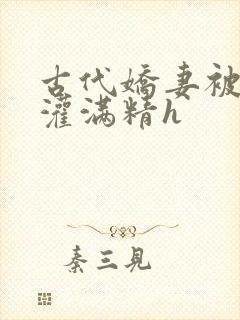 古代嬌妻被
灌滿精h
秦三見